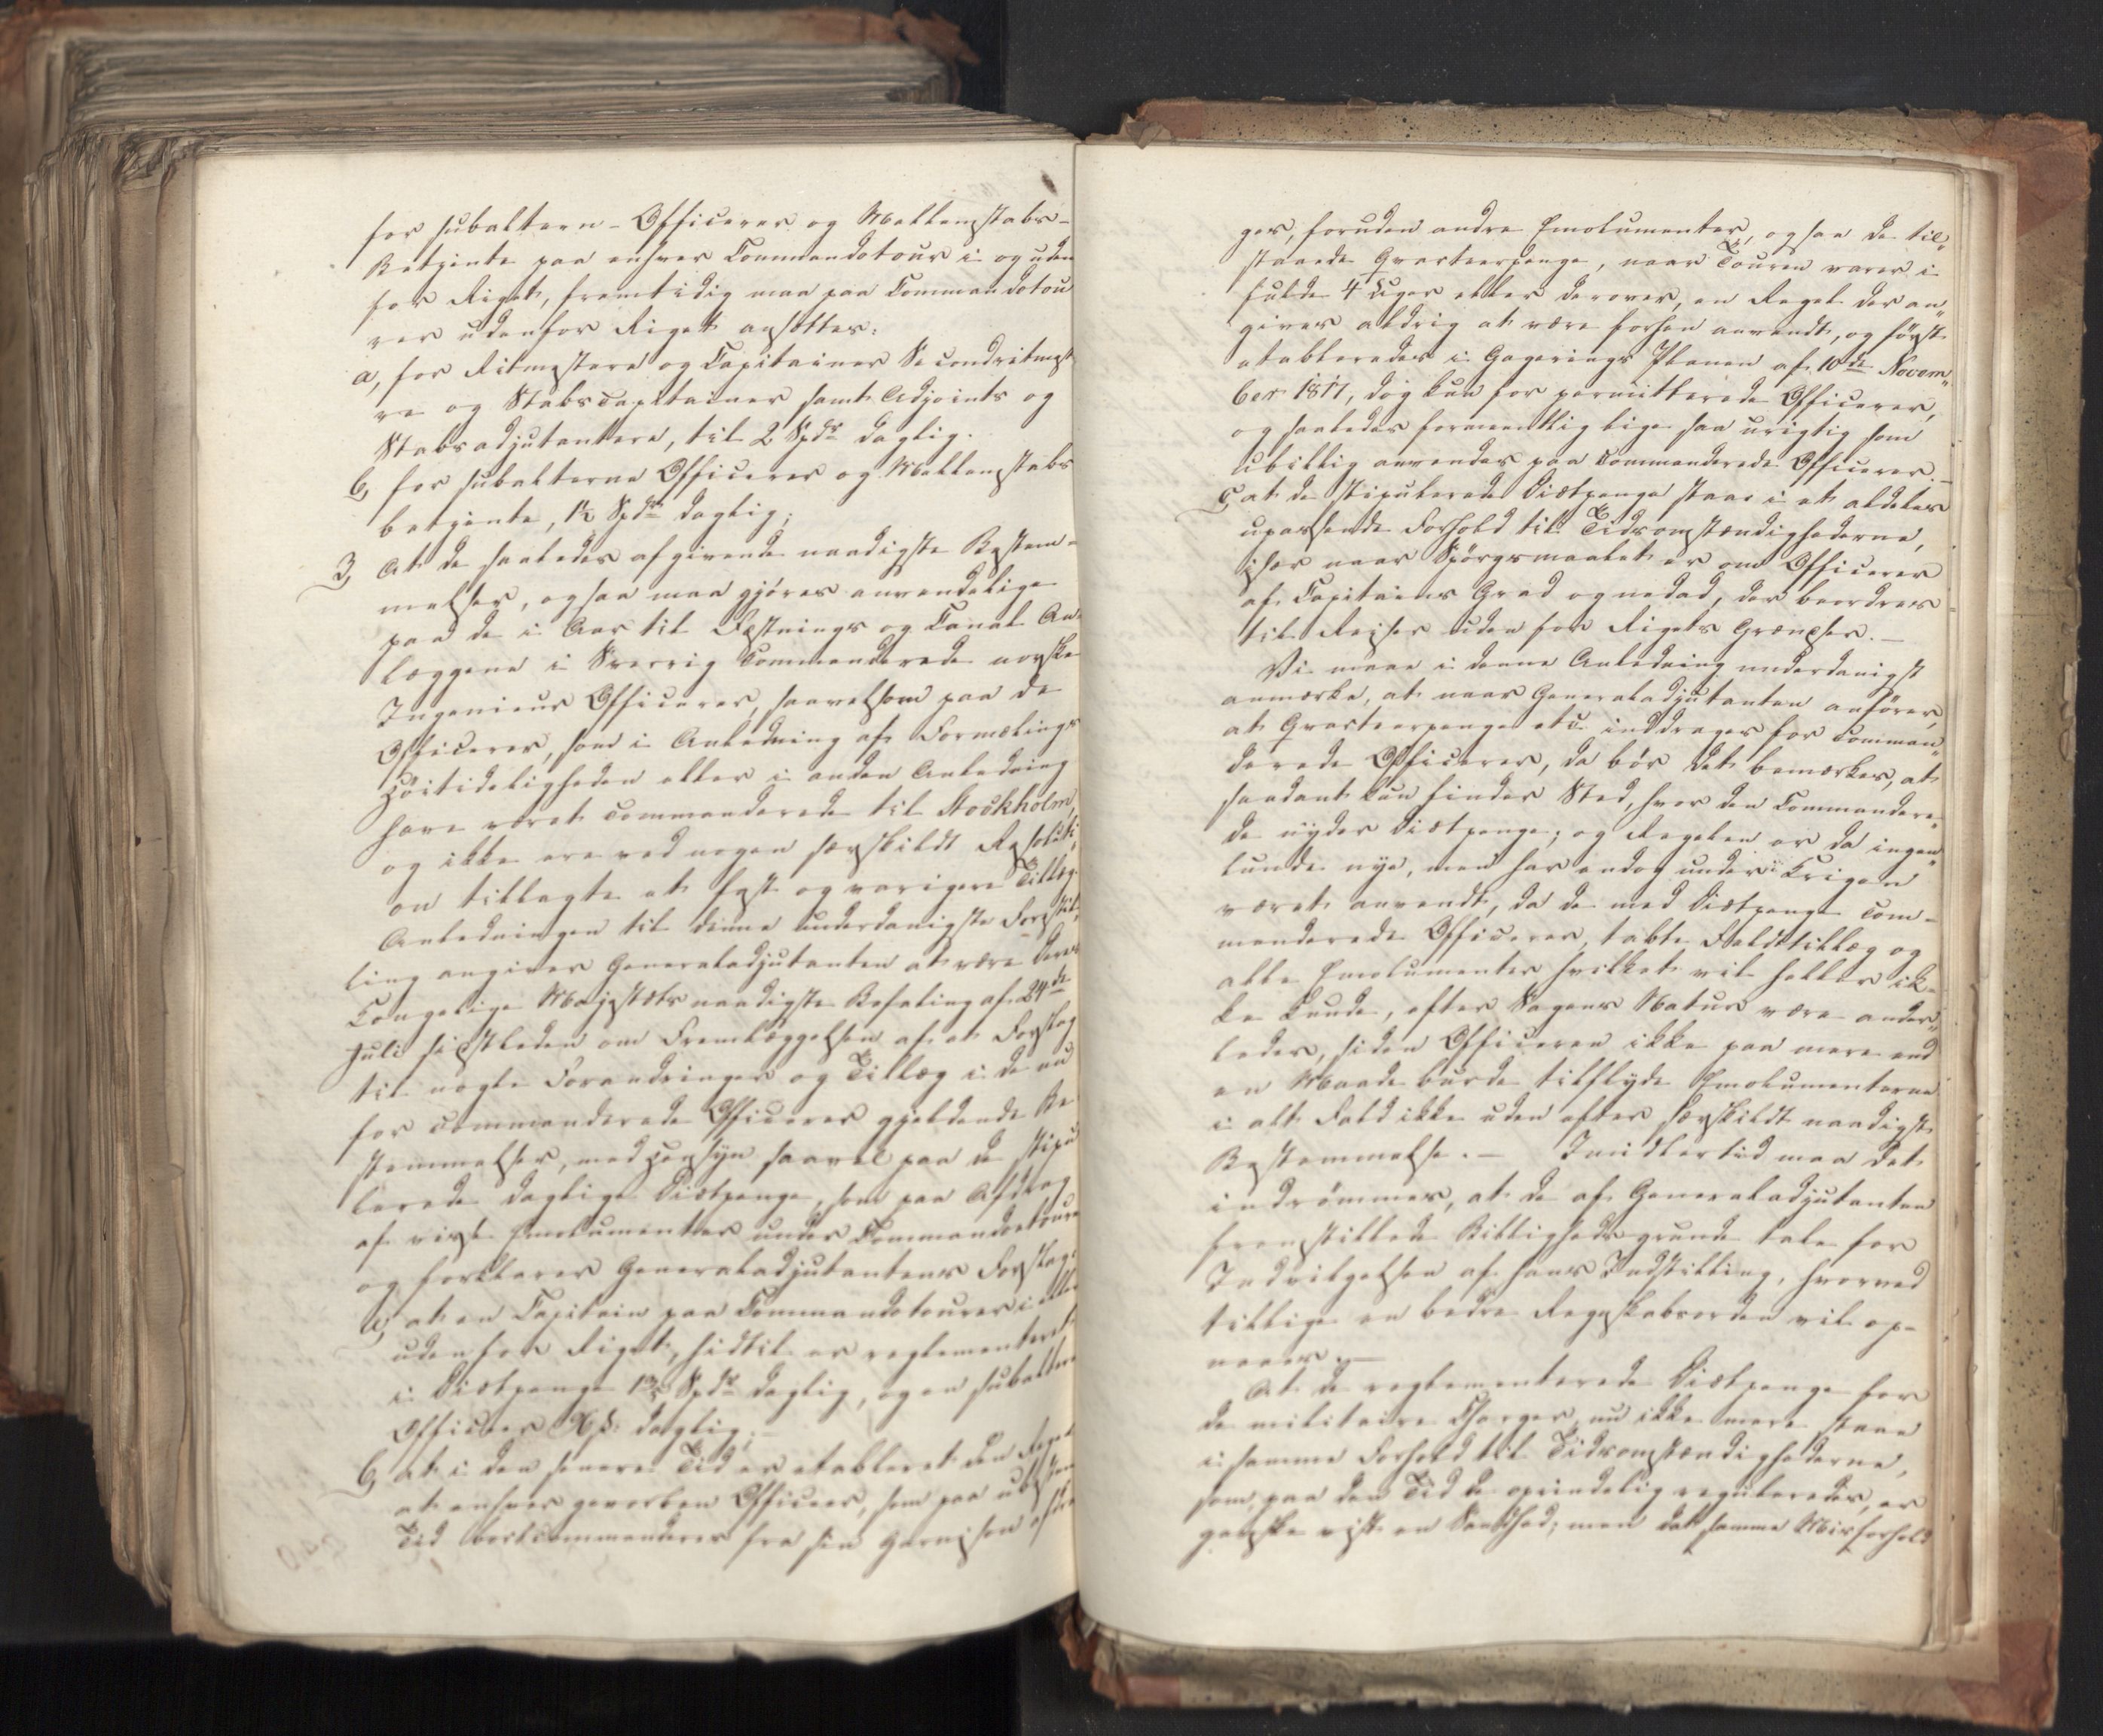 for subaltern-Officerer og Mellemstabs-
Betjente paa enhver Commandotour i og uden
for Riget, fremtidig maa paa Commandotou
rer udenfor Riget ansættes:
a, for Ritmestere og Capitainer Secondritmest
re og Stabscapitainer samt Adjoints og
Stabsadjutantere, til 2 Spdr daglig.
b, for subalterne Officerer og Mellemstabs
betjente, 1½ Spdr daglig;
3, At de saaledes afgivende naadigste Bestem-
melser, ogsaa maa gjøres anvendelige
paa de i Aar til Fæstnings og Canal An-
læggene i Sverrig commanderede norske
Ingenieur Officerer, saavelsom paa de
Officerer, som i Anledning af Formælings
Høitideligheden eller i anden Anledning
have været commanderede til Stockholm,
og ikke ere ved nogen særskildt Resoluti„
on tillagte et fast og varigere Tillæg.
Anledningen til denne underdanigste Forestil„
ling angiver Generaladjutanten at være Deres
Kongelige Majestæts naadigste Befaling af 24de
Juli sidstleden om Fremlæggelsen af et Forslag
til nogle Forandringer og Tillæg i de nu
for commanderede Officerer gjeldende Be
stemmelser, med Hensyn saavel paa de stipu
lerede daglige Diætpenge, som paa Afdrag
af visse Emolumenter under Commandotoure
og forklarer Generaladjutantens Forslag:
a, at en Capitain paa Commandotourer i eller
udenfor Riget, hidtil er reglementeret
i Diætpenge Spdr daglig, og en subaltern
Officeer daglig;
b, at i den senere Tid er etableret den Regel
at enhver gevorben Officeer, som paa ubestemt
Tid bortcommanderes fra sin Garnison
ges, foruden andre Emolumenter, ogsaa de til„
staaede Qvarteerpenge, naar Touren varer i
fulde 4 Uger eller derover, en Regel der an„
gives aldrig at være forhen anvendt, og først
etableredes i Gagerings Planen af 10de Novem„
ber 1817, dog kun for permitterede Officerer,
og saaledes formeentlig lige saa urigtig som
ubillig anvendes paa commanderede Officerer.-
c, at de stipulerede Diætpenge staae i et aldeles
upassende Forhold til Tidsomstændighederne,
især naar Spørgsmaalet er om Officerer
af Capitains Grad og nedad, der beordres
til Reiser uden for Rigets Grændser.-
Vi maae i denne Anledning underdanigst
anmærke, at naar Generaladjutanten anfører,
at Qvarteerpenge etc inddrages for comman„
derede Officerer, da bør det bemærkes, at
saadant kun finder Sted, hvor den Commandere„
de nyder Diætpenge; og Regelen er da ingen„
lunde nye, men har endog under Krigen
været anvendt, da de med Diætpenge com-
manderede Officerer, tabte Felttillæg og
alle Emolumenter hvilket vil heller ik-
ke kunde, efter Sagens Natur være ander„
ledes, siden Officeren ikke paa mere end
en Maade burde tilflyde Emolumenterne
i alt Fald ikke uden efter særskildt naadigst
Bestemmelse.- Imidlertid maa det
indrømmes, at de af Generaladjutanten
fremstillede Billighedsgrunde tale for
Indvilgelsen af hans Indstilling, hvorved
tillige en bedre Regnskabsorden vil op-
naaes.-
At de reglementerede Diætpenge for
de militaire Charger nu ikke mere staae
i samme Forhold til Tidsomstændighederne,
som, paa den Tid de oprindelig reguleredes, er
ganske vist en Sandhed; men det samme Misforhold